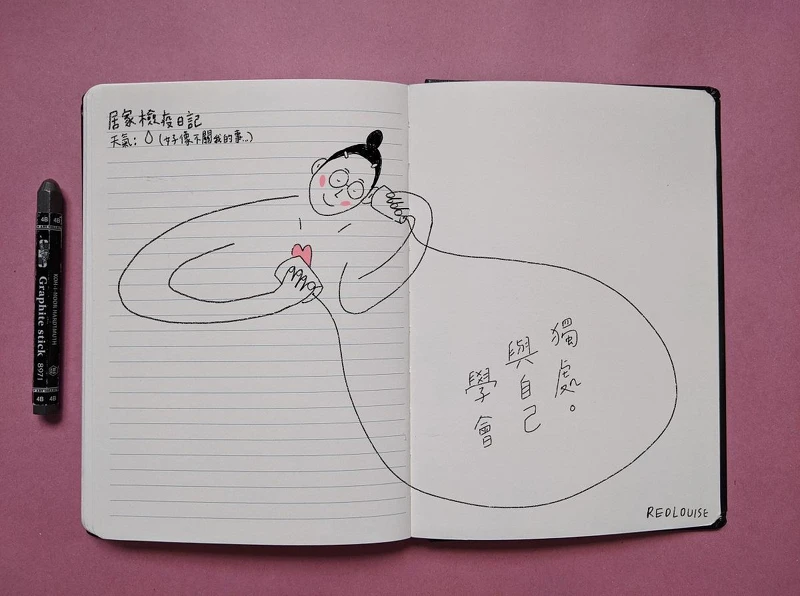 居家檢疫日記
天氣：💧(好像不關我的事...)
學會
與自己
獨處。
REDLOUISE
4B 4B
KOH-I-NOOR HARDTMUTH
Graphite stick
8971
4B 4B